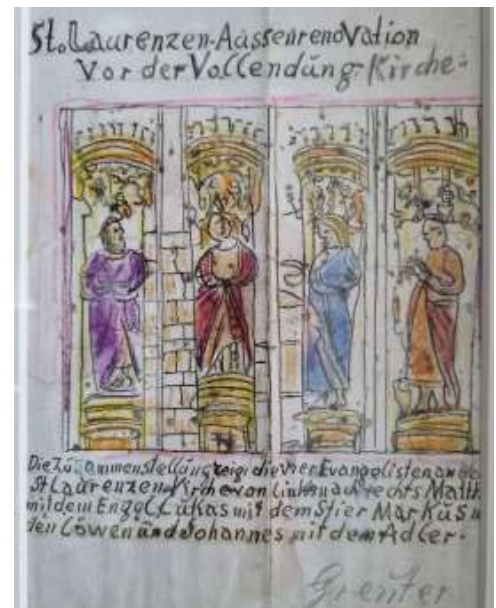 St. Laurenzen-Aussenrenovation
Vor der Vollendung-Kirche:
Die Zusammenstellung zeigt die vier Evangelisten an de
St Laurenzen-Kirche von Links nach rechts Matth
mit dem Engel Lukas mit dem Stier Markus
den Löwen und Johannes mit dem Adler.